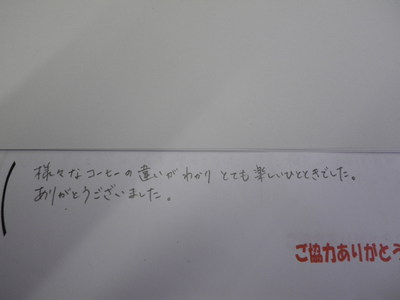 様々なコーヒーの違いがわかりとても楽しいひとときでした。
ありがとうございました。
ご協力ありがとう